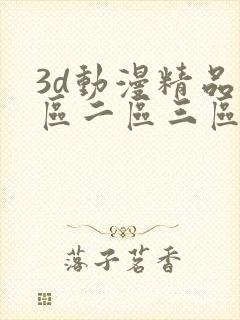 3d動漫精品
區二區三區
落子茗香